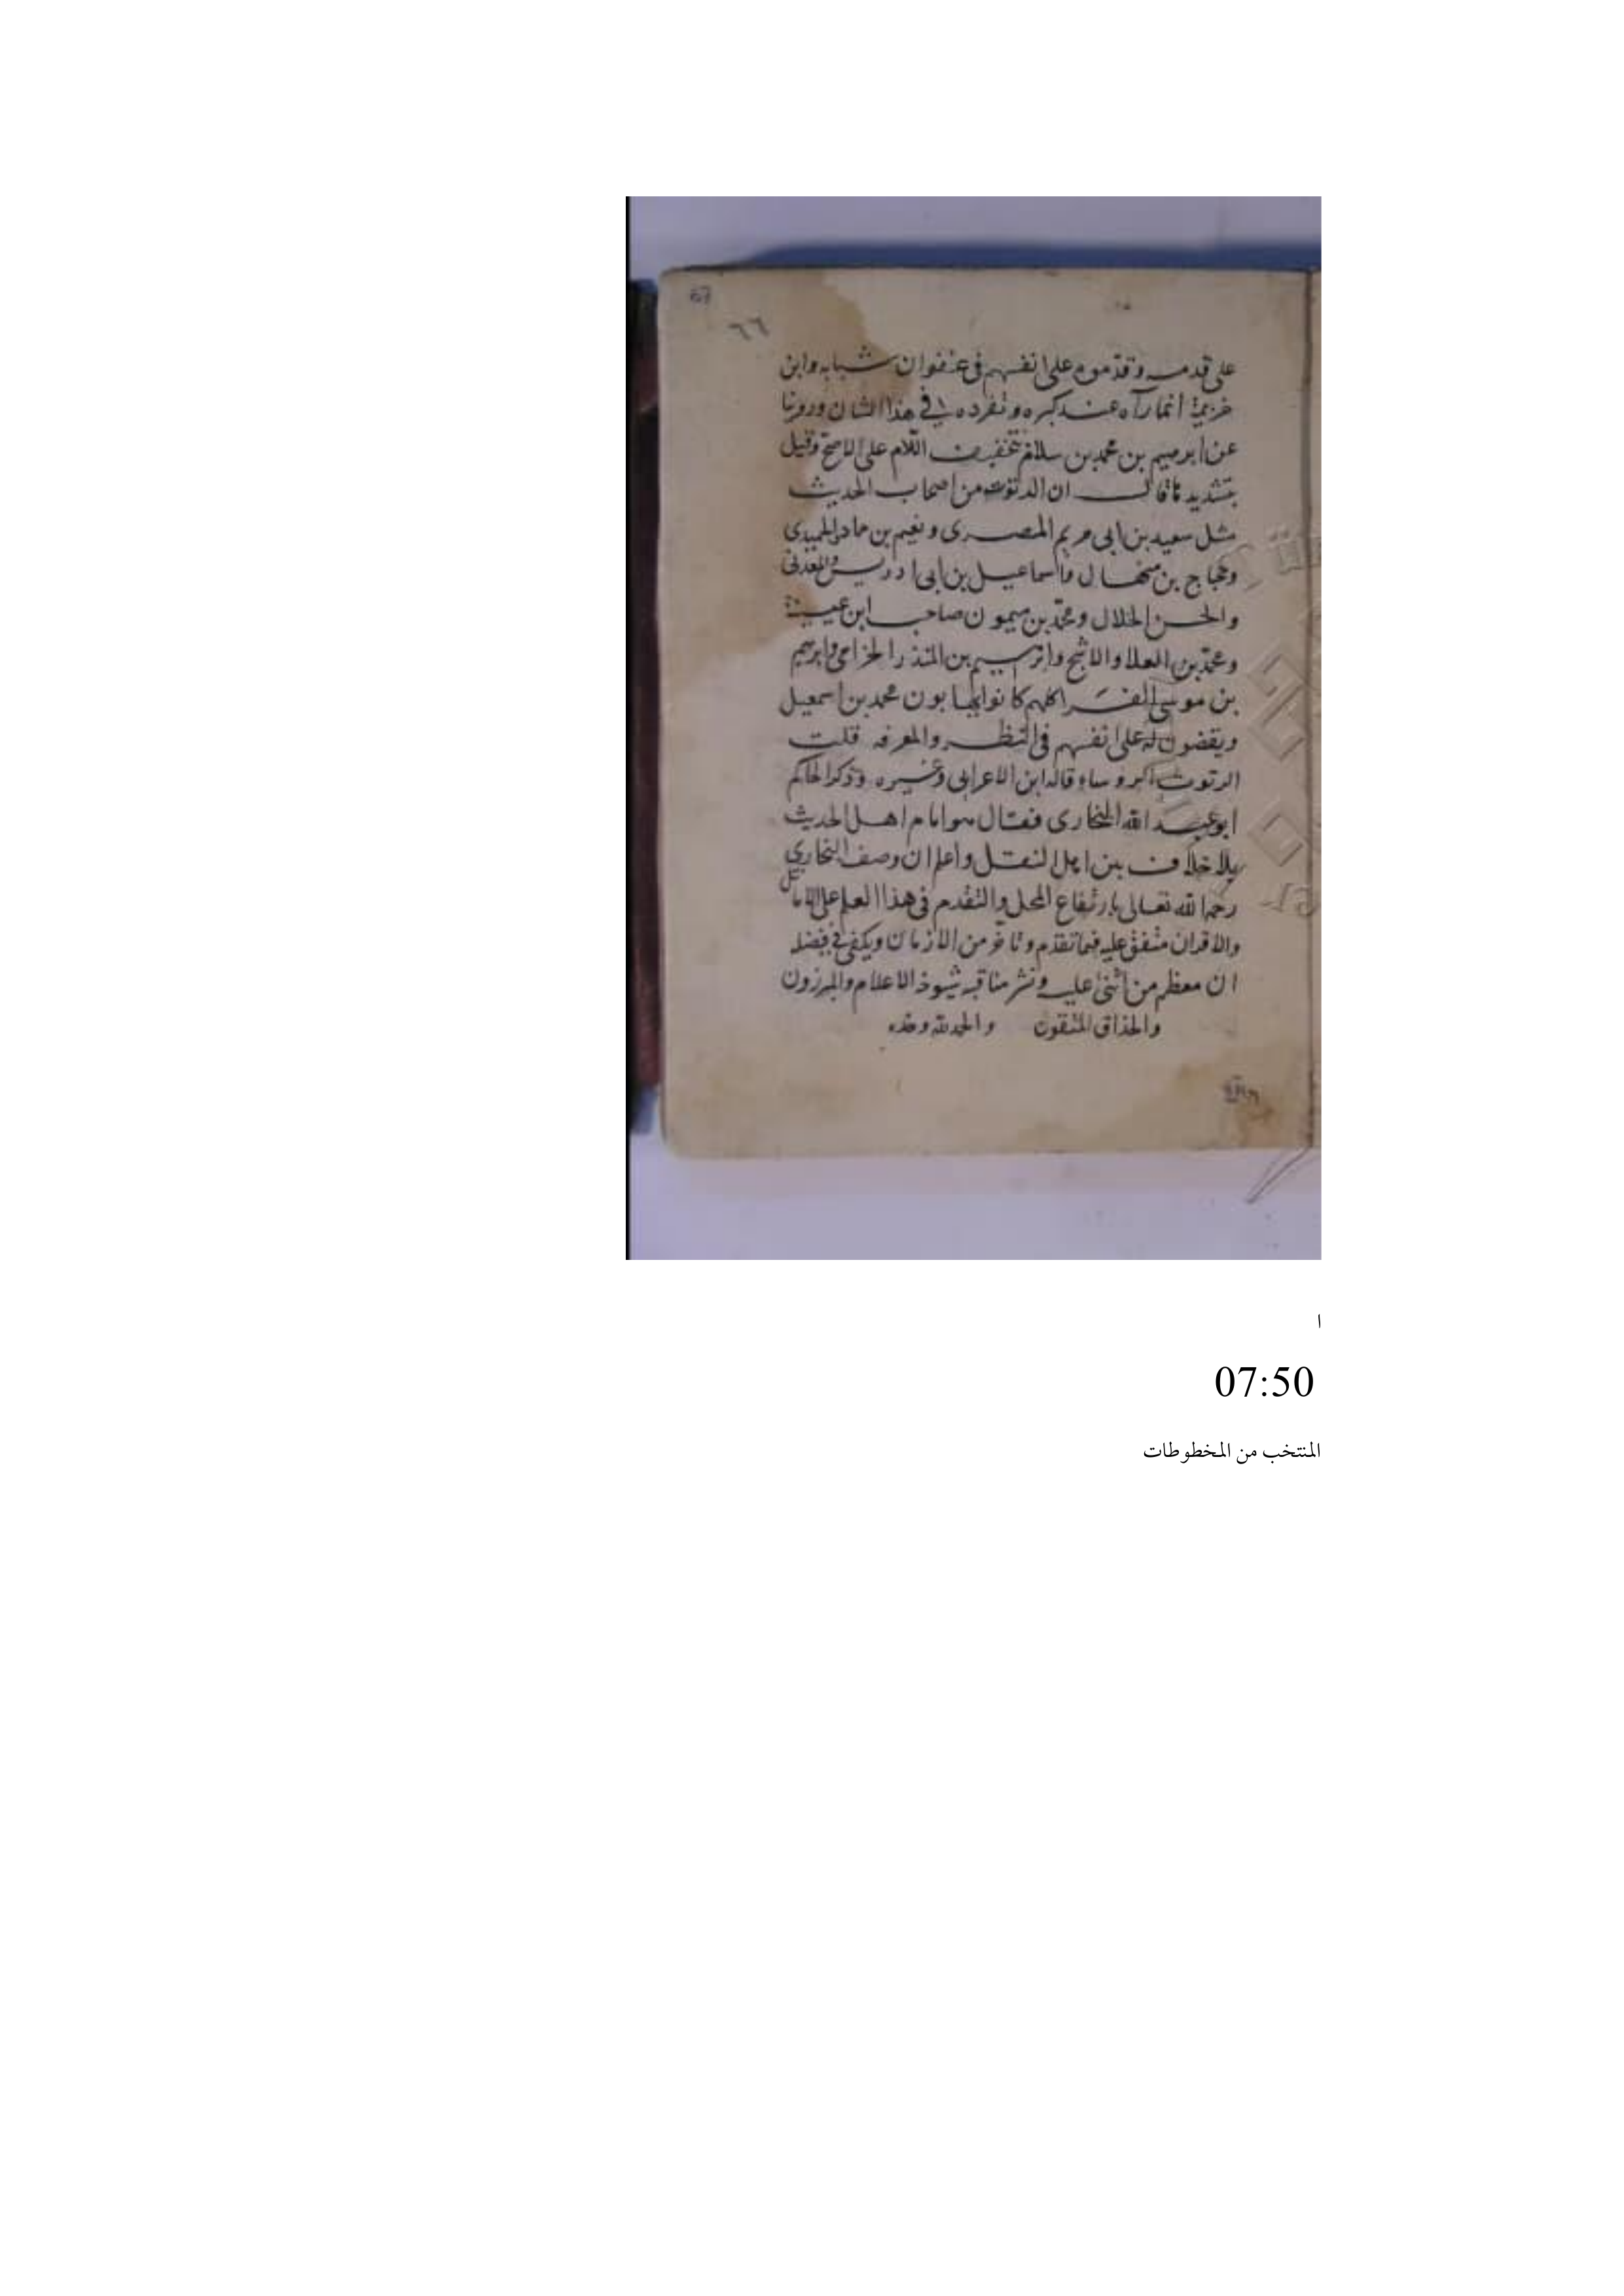 ٦٦
على قدمه وقدموه على انفسهم فى عنفوان شبابه وابن
خزيمة انما رآه عند كبره وتفرده فى هذا الشان وروينا
عن ابرهيم بن محمد بن سلام بتخفيف اللام على الاصح وقيل
بتشديدها قال ان الرتوت من اصحاب الحديث
مثل سعيد بن ابى مريم المصرى ونعيم بن حماد والحميدى
وحجاج بن منهال واسماعيل بن ابى ادريس والعدنى
والحسن الخلال ومحمد بن ميمون صاحب ابن عيينة
ومحمد بن العلا والاشج وابرهيم بن المنذر الحزامى وابرهيم
بن موسى الفرا كلهم كانوا يهابون محمد بن اسمعيل
ويقضون له على انفسهم فى النظر والمعرفه قلت
الرتوت الروساء قاله ابن الاعرابى وغيره وذكر الحاكم
ابو عبد الله البخارى فقال هو امام اهل الحديث
بلا خلاف بين اهل النقل واعلم ان وصف البخارى
رحمه الله تعالى بارتفاع المحل والتقدم فى هذا العلم على الاماثل
والاقران متفق عليه فيما تقدم وتاخر من الازمان ويكفى فى فضله
ان معظم من اثنى عليه ونشر مناقبه شيوخه الاعلام والمبرزون
والحذاق المتقون والحمد لله وحده
ا
07:50
المنتخب من المخطوطات